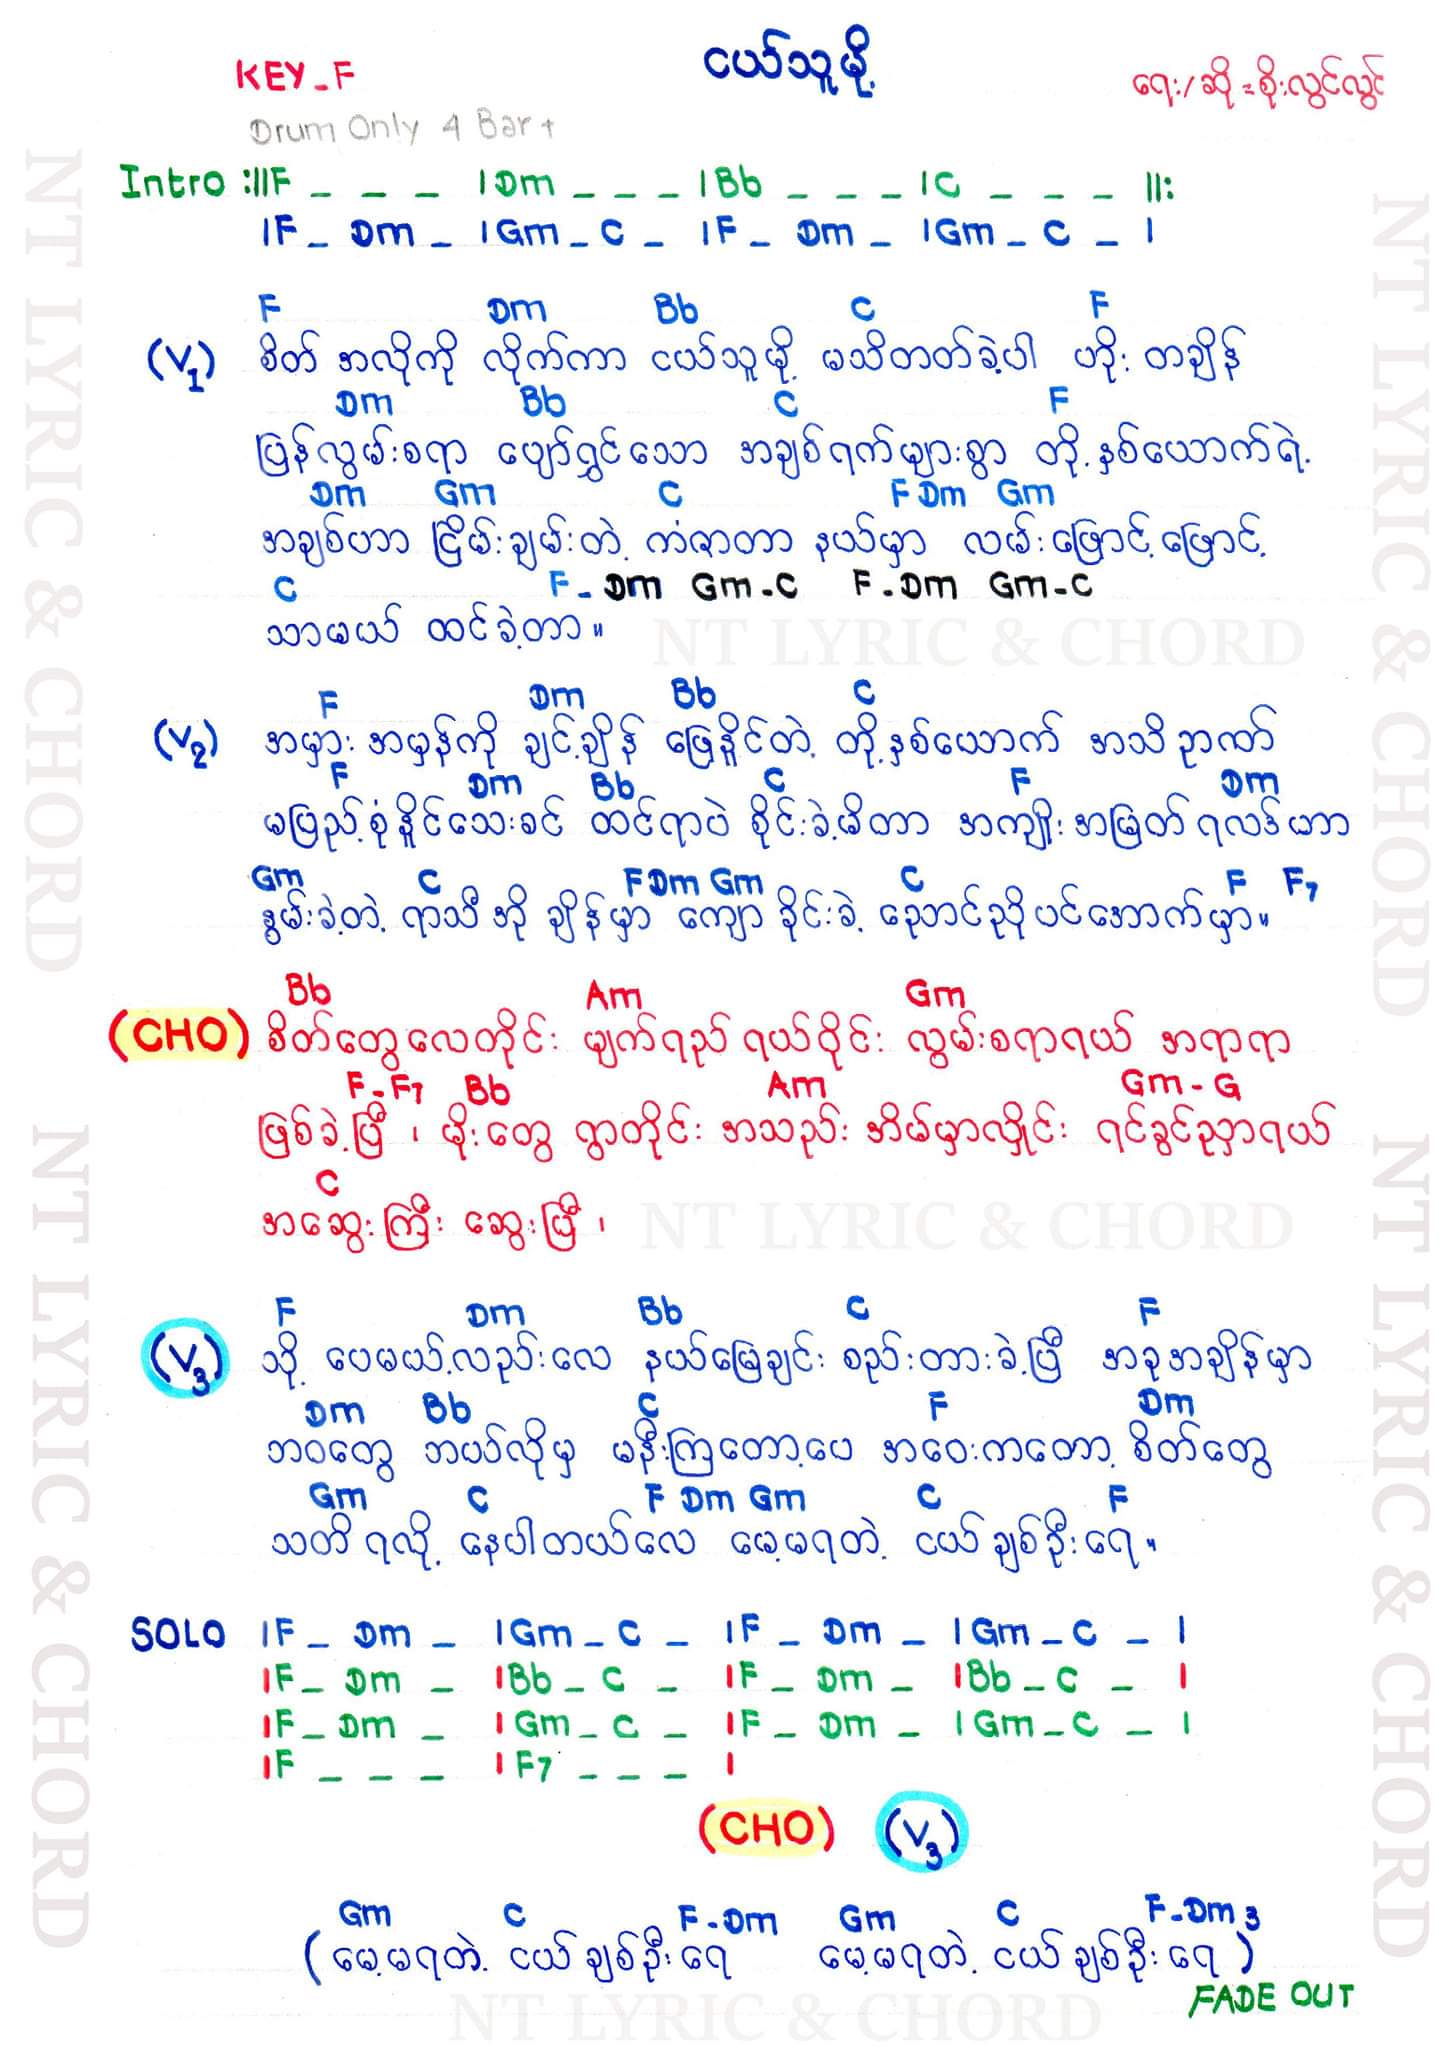 ငယ်သူမို့
KEY-F
ရေး/ဆို = စိုးလွင်လွင်
Drum Only 4 Bar +
Intro :||F _ _ _ |Dm _ _ _ |Bb _ _ _ |C _ _ _ ||:
|F _ Dm _ |Gm _ C _ |F _ Dm _ |Gm _ C _ |
F Dm Bb C F
(V1) စိတ် အလိုကို လိုက်ကာ ငယ်သူမို့ မသိတတ်ခဲ့ပါ ဟိုး တချိန်
Dm Bb C F
ပြန်လွမ်းစရာ ပျော်ရွှင်သော အချစ်ရက်များစွာ တို့နှစ်ယောက်ရဲ့
Dm Gm C F Dm Gm
အချစ်ဟာ ငြိမ်းချမ်းတဲ့ ကံဇာတာ နယ်မှာ လမ်းဖြောင့်ဖြောင့်
C F - Dm Gm - C F - Dm Gm - C
သာမယ် ထင်ခဲ့တာ။
F Dm Bb C
(V2) အမှား အမှန်ကို ချင့်ချိန် ဖြေနိုင်တဲ့ တို့နှစ်ယောက် အသိဉာဏ်
F Dm Bb C F Dm
မပြည့်စုံနိူင်သေးခင် ထင်ရာပဲ စိုင်းခဲ့မိတာ အကျိုးအမြတ် ရလဒ်ဟာ
Gm C F Dm Gm C F F7
နွမ်းခဲ့တဲ့ ရာသီ အို ချိန်မှာ ကျော ခိုင်းခဲ့ ညောင်ညိုပင်အောက်မှာ။
Bb Am Gm
(CHO) စိတ်တွေလေတိုင်း မျက်ရည် ရယ်ဝိုင်း လွမ်းစရာရယ် အရာရာ
F - F7 Bb Am Gm - G
ဖြစ်ခဲ့ပြီ ၊ မိုးတွေ ရွာတိုင်း အသည်း အိမ်မှာလှိုင်း ရင်ခွင်ညှာရယ်
C
အဆွေးကြီး ဆွေးပြီ ၊
F Dm Bb C F
(V3) သို့ ပေမယ့်လည်းလေ နယ်မြေချင်း စည်းတားခဲ့ပြီ အခုအချိန်မှာ
Dm Bb C F Dm
ဘဝတွေ ဘယ်လိုမှ မနီးကြတော့ပေ အဝေးကတော့ စိတ်တွေ
Gm C F Dm Gm C F
သတိ ရလို့ နေပါတယ်လေ မေ့မရတဲ့ ငယ်ချစ်ဦးရေ။
SOLO |F _ Dm _ |Gm _ C _ |F _ Dm _ |Gm _ C _ |
|F _ Dm _ |Bb _ C _ |F _ Dm _ |Bb _ C _ |
|F _ Dm _ |Gm _ C _ |F _ Dm _ |Gm _ C _ |
|F _ _ _ |F7 _ _ _ |
(CHO) (V3)
Gm C F - Dm Gm C F - Dm 3
(မေ့မရတဲ့ ငယ်ချစ်ဦးရေ မေ့မရတဲ့ ငယ်ချစ်ဦးရေ)
FADE OUT
NT LYRIC & CHORD
NT LYRIC & CHORD
NT LYRIC & CHORD
NT LYRIC & CHORD
NT LYRIC & CHORD
NT LYRIC & CHORD
NT LYRIC & CHORD